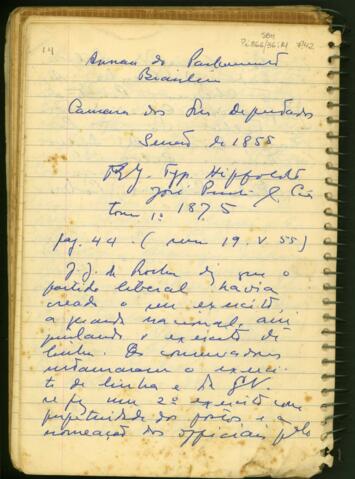 14
SBH
Pi 866/36: M 7/42
Annaes do Parlamento
Brasileiro
Camara dos Srs Deputados
Sessão de 1855
R.J. Typ. Hippolito
José Pinto & Cia
tomo 1º 1875
pag. 44. (sessão 19. V. 55)
J. J. da Rocha diz que o
partido liberal havia
creado o seu exercito,
a guarda nacional,
o exercito de
linha. Os conservadores
o exerci-
to de linha e da G.N.
se fez um 2º exercito com
perpetuidade dos postos e a
nomeação dos officiais pelo